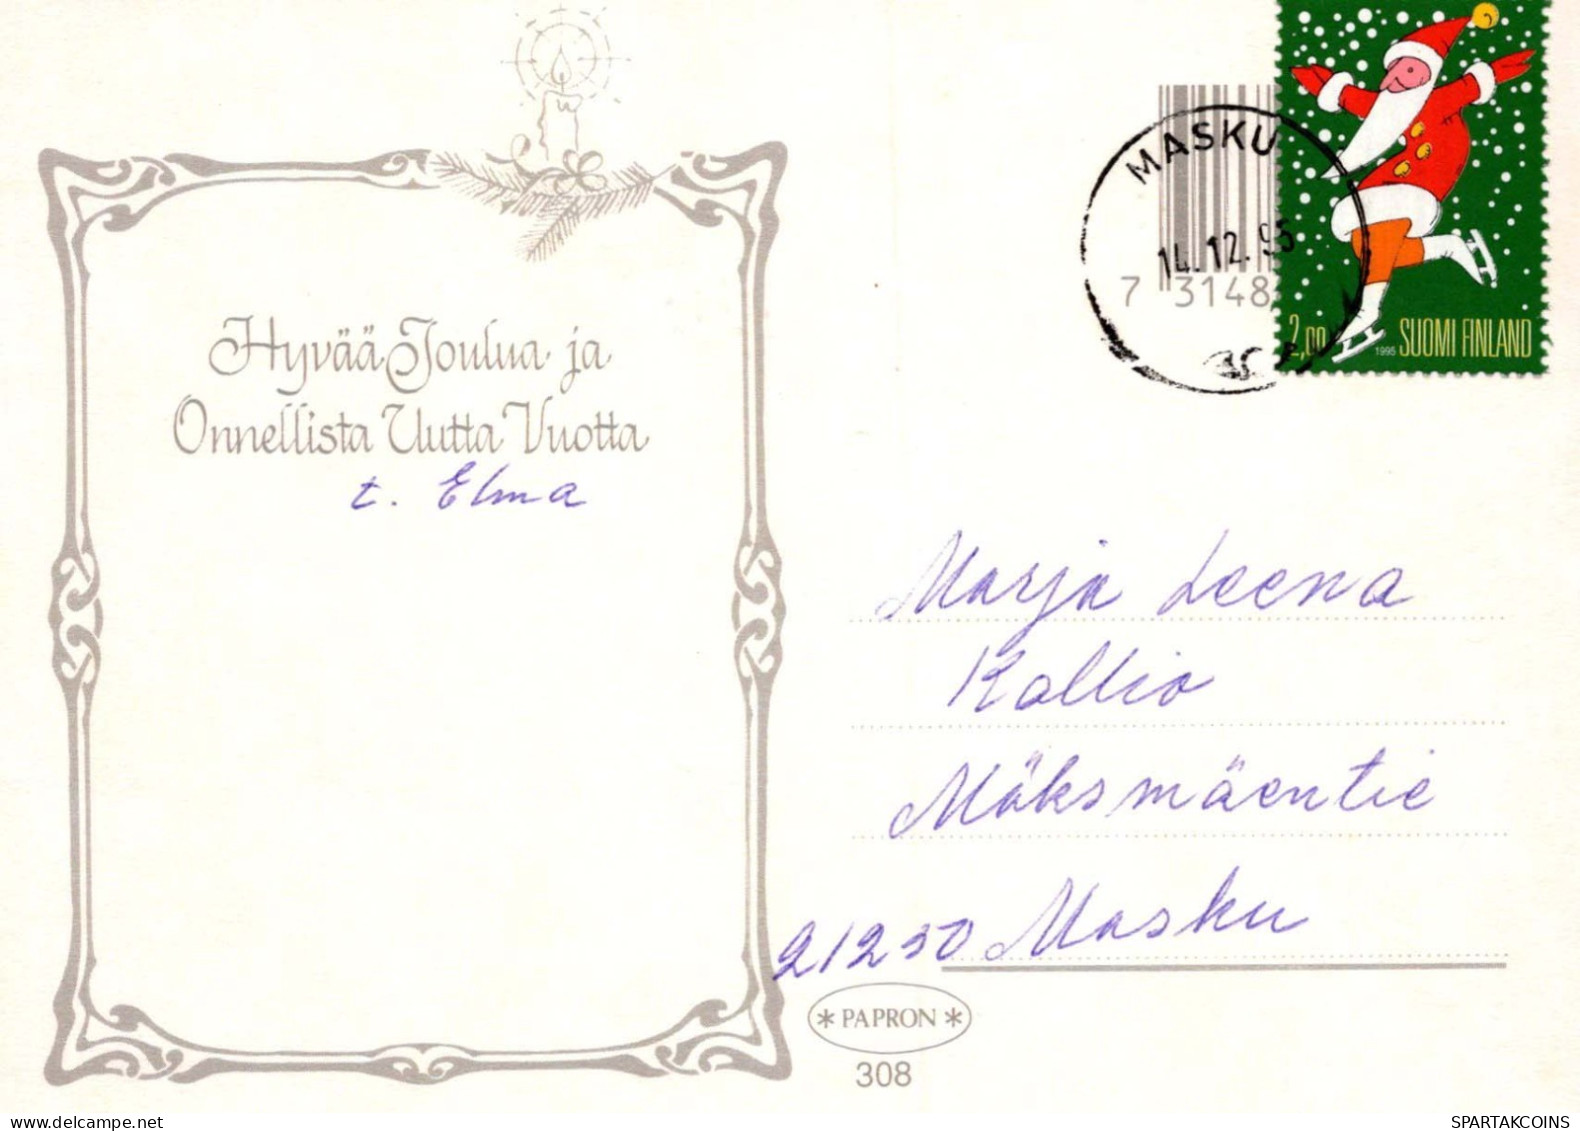 MASKU
14.12.95
7 3148
2,00
1995 SUOMI FINLAND
Hyvää Joulua ja
Onnellista Uutta Vuotta
t. Elma
Marja Leena
Kallio
Mäksmäentie
21230 Masku
* PAPRON *
308
SPARTAKCOINS